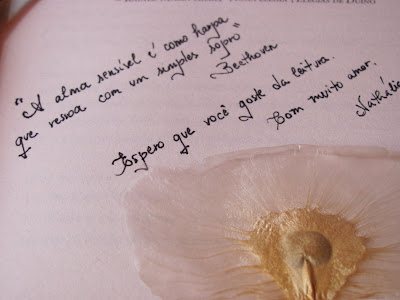 ELEGIAS DE DUÍNO
"A alma sensível é como harpa
que ressoa com um simples sopro"
Beethoven
Espero que você goste da leitura.
Com muito amor,
Nathália